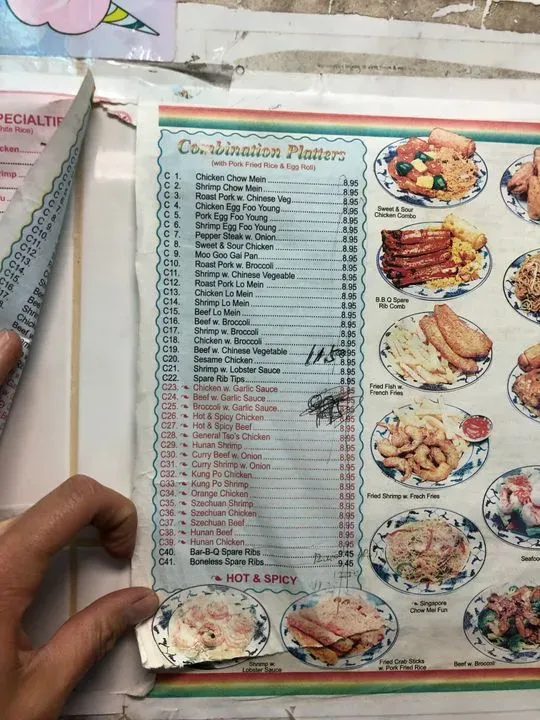 PECIALTIE
hite Rice)
Combination Platters
(with Pork Fried Rice & Egg Roll)
C 1. Chicken Chow Mein 8.95
C 2. Shrimp Chow Mein 8.95
C 3. Roast Pork w. Chinese Veg 8.95
C 4. Chicken Egg Foo Young 8.95
C 5. Pork Egg Foo Young 8.95
C 6. Shrimp Egg Foo Young 8.95
C 7. Pepper Steak w. Onion 8.95
C 8. Sweet & Sour Chicken 8.95
C 9. Moo Goo Gai Pan 8.95
C10. Roast Pork w. Broccoli 8.95
C11. Shrimp w. Chinese Vegeable 8.95
C12. Roast Pork Lo Mein 8.95
C13. Chicken Lo Mein 8.95
C14. Shrimp Lo Mein 8.95
C15. Beef Lo Mein 8.95
C16. Beef w. Broccoli 8.95
C17. Shrimp w. Broccoli 8.95
C18. Chicken w. Broccoli 8.95
C19. Beef w. Chinese Vegetable 8.95
C20. Sesame Chicken 8.95
C21. Shrimp w. Lobster Sauce 8.95
C22. Spare Rib Tips 8.95
C23. Chicken w. Garlic Sauce 8.95
C24. Beef w. Garlic Sauce 8.95
C25. Broccoli w. Garlic Sauce 8.95
C26. Hot & Spicy Chicken 8.95
C27. Hot & Spicy Beef 8.95
C28. General Tso's Chicken 8.95
C29. Hunan Shrimp 8.95
C30. Curry Beef w. Onion 8.95
C31. Curry Shrimp w. Onion 8.95
C32. Kung Po Chicken 8.95
C33. Kung Po Shrimp 8.95
C34. Orange Chicken 8.95
C35. Szechuan Shrimp 8.95
C36. Szechuan Chicken 8.95
C37. Szechuan Beef 8.95
C38. Hunan Beef 8.95
C39. Hunan Chicken 8.95
C40. Bar-B-Q Spare Ribs 9.45
C41. Boneless Spare Ribs 9.45
HOT & SPICY
Sweet & Sour
Chicken Combo
B.B.Q Spare
Rib Comb
Fried Fish w.
French Fries
Fried Shrimp w. Frech Fries
Seafoo
Singapore
Chow Mei Fun
Shrimp w.
Lobster Sauce
Fried Crab Sticks
w. Pork Fried Rice
Beef w. Broccoli